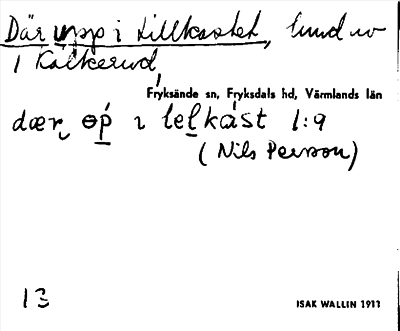 Där upp i tillkastet, lund uv
1 Kalkerud,
Fryksände sn, Fryksdals hd, Värmlands län
dær ɵp ı lelkást 1:9
(Nils Persson)
13
ISAK WALLIN 1911